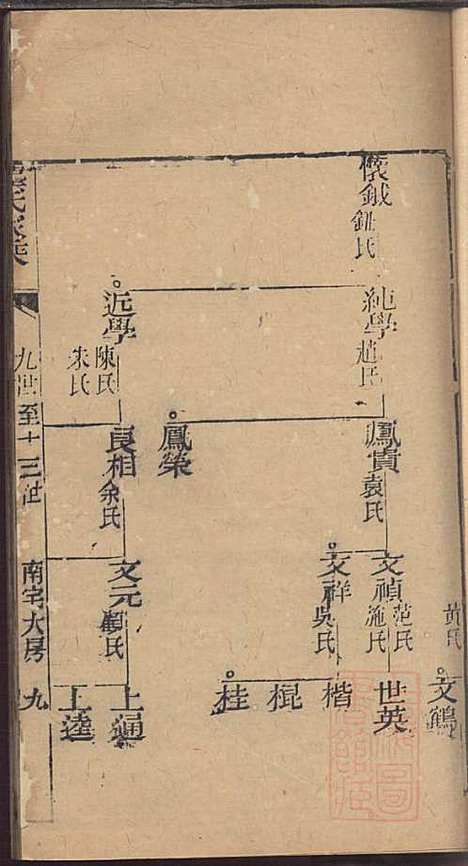 黄氏
文鶴
儀鉞 鈕氏
純學 趙氏
鳳賓 袁氏
文禎 范氏 施氏
世英
文祥 吳氏
楷
棍
桂
鳳榮
近學 陳氏 朱氏
良相 余氏
文元 顧氏
上通
上達
九世至十三世
南宅大房
九